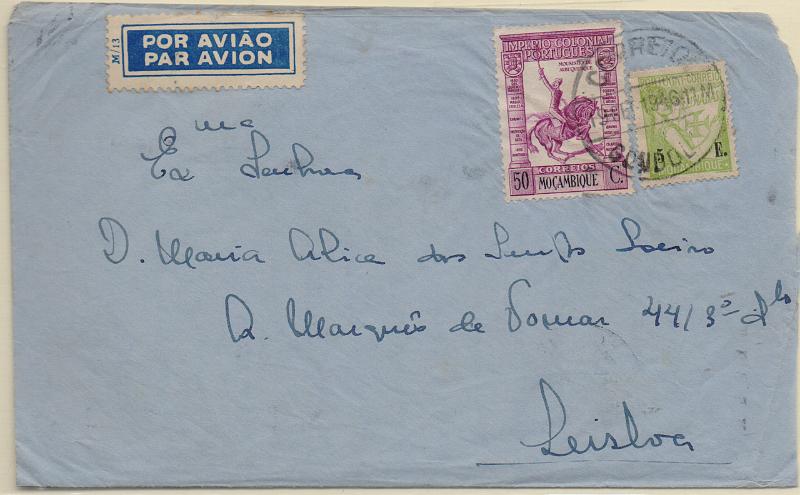 M/13
POR AVIÃO
PAR AVION
IMPÉRIO COLONIAL
PORTUGUÊS
MOUSINHO DE
ALBUQUERQUE
CORREIOS
50 MOÇAMBIQUE C.
CORREIO
1946
5 E.
MOÇAMBIQUE
Exma Senhora
D. Maria Alice dos Santos Loeiro
R. Marquês de Tomar 44/3º Dto
Lisboa